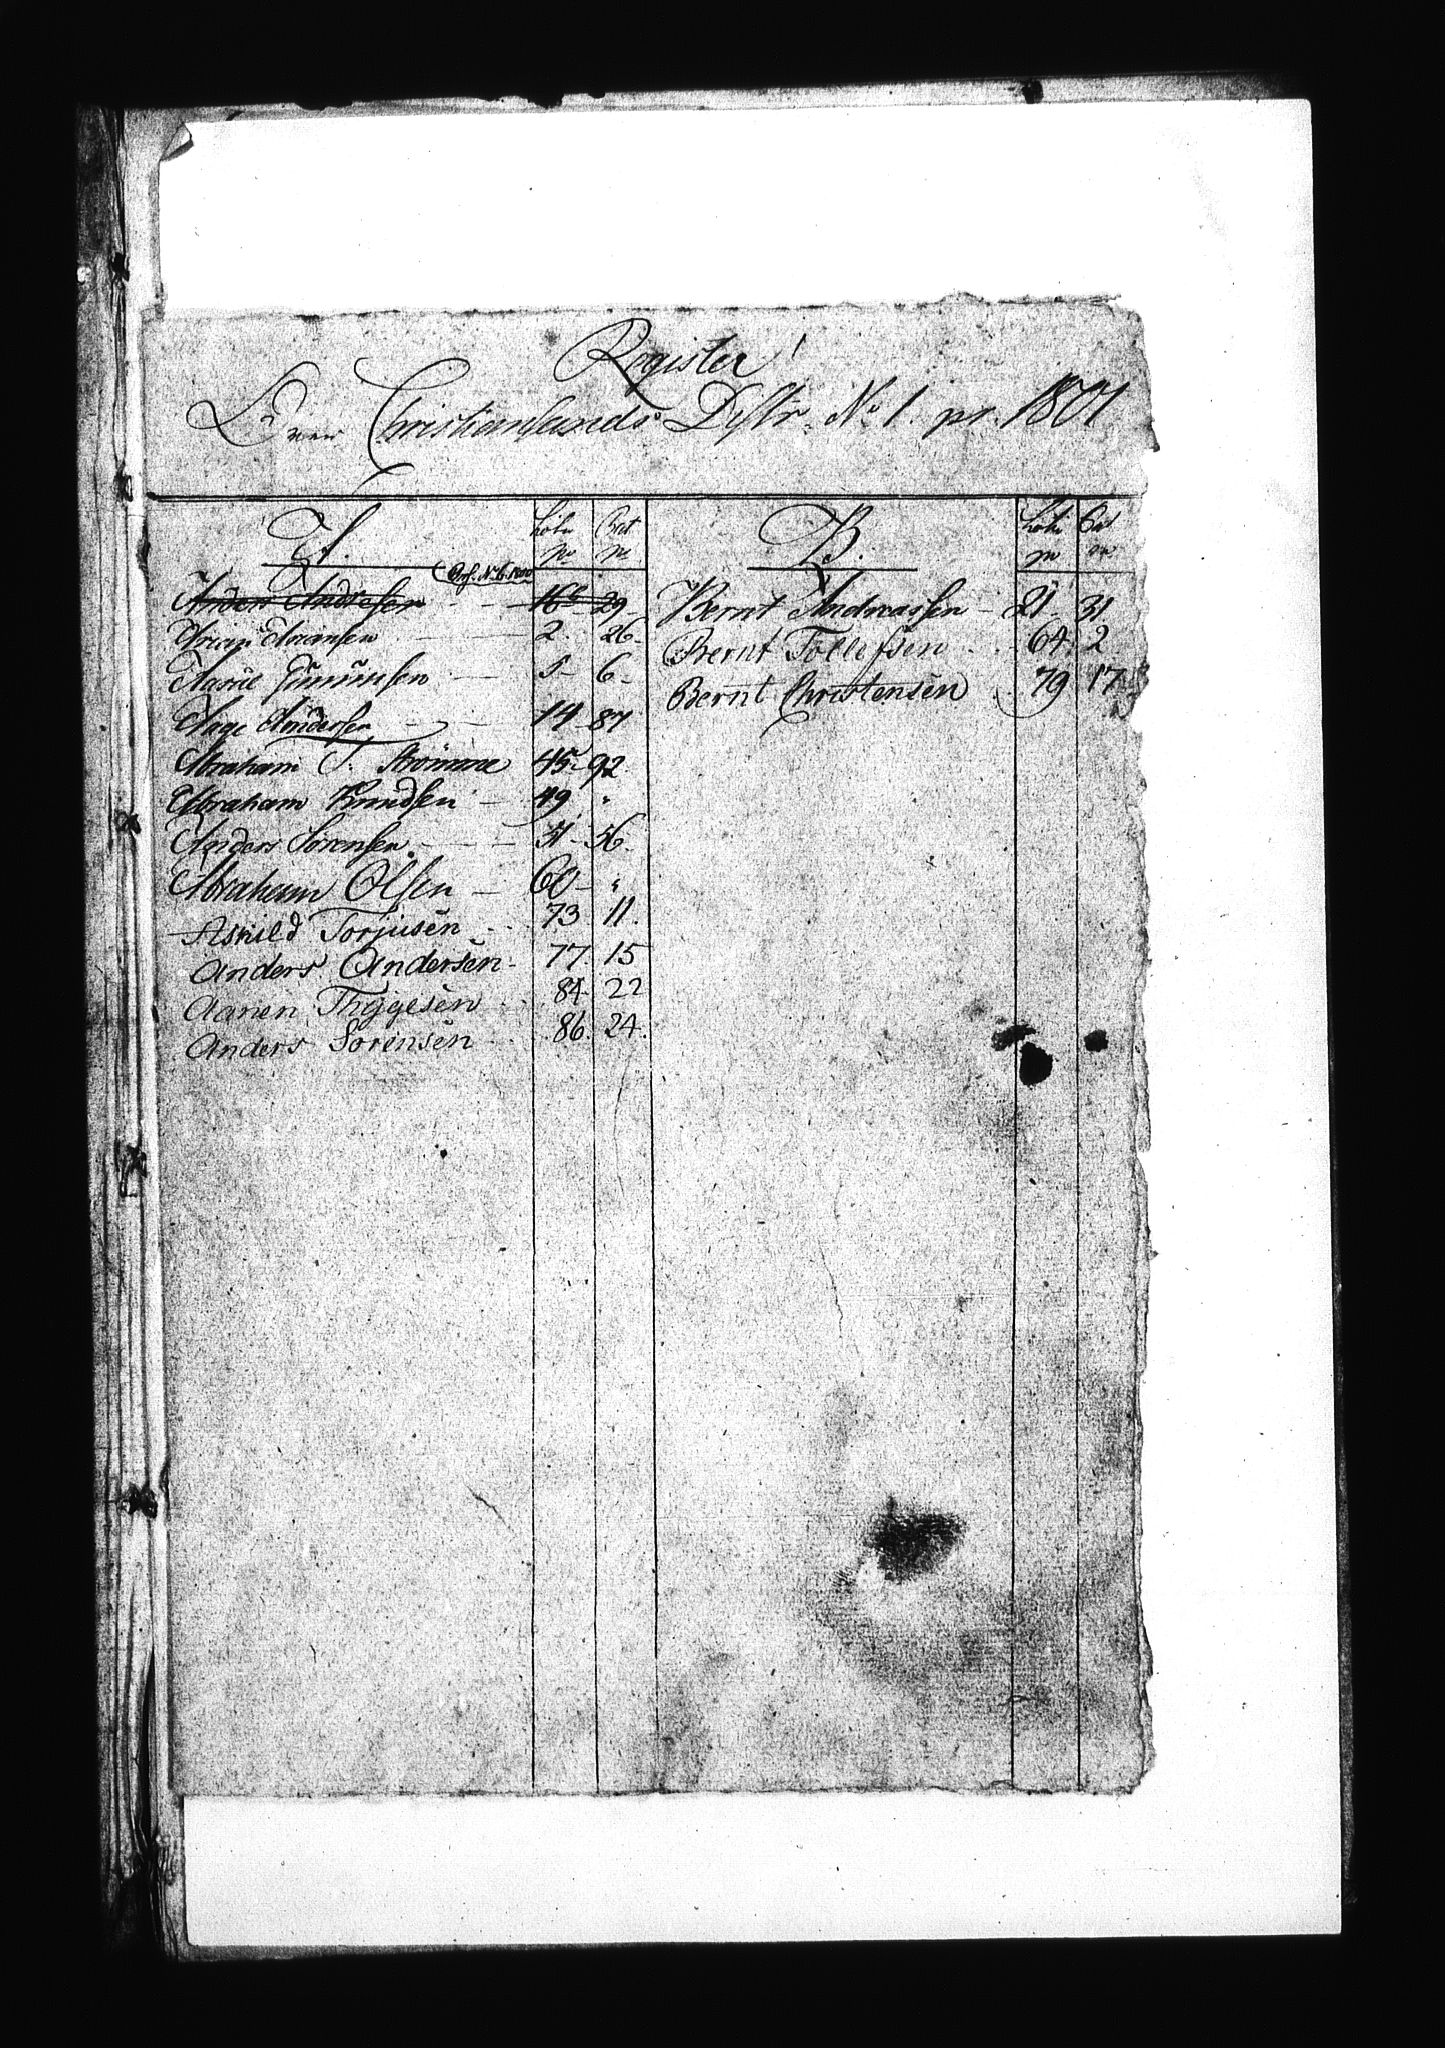 Register
Over Christiansunds Distr. No 1. pr. 1801
A. No No
B. No No
Anders Andresen 166 29
2. 26
5 6
Aage Andersen 14 87
Abraham S. Strömme 45 92
Abraham Knudsen 49 "
Anders Sörensen 51 56
Abraham Olsen 60 "
Askild Torjusen 73 11.
Anders Andersen 77 15
Aanen Thÿgesen 84 22
Anders Sorensen 86. 24.
Bernt Andreassen 21 31
Bernt Tollefsen 64 2
Bernt Christensen 79 17